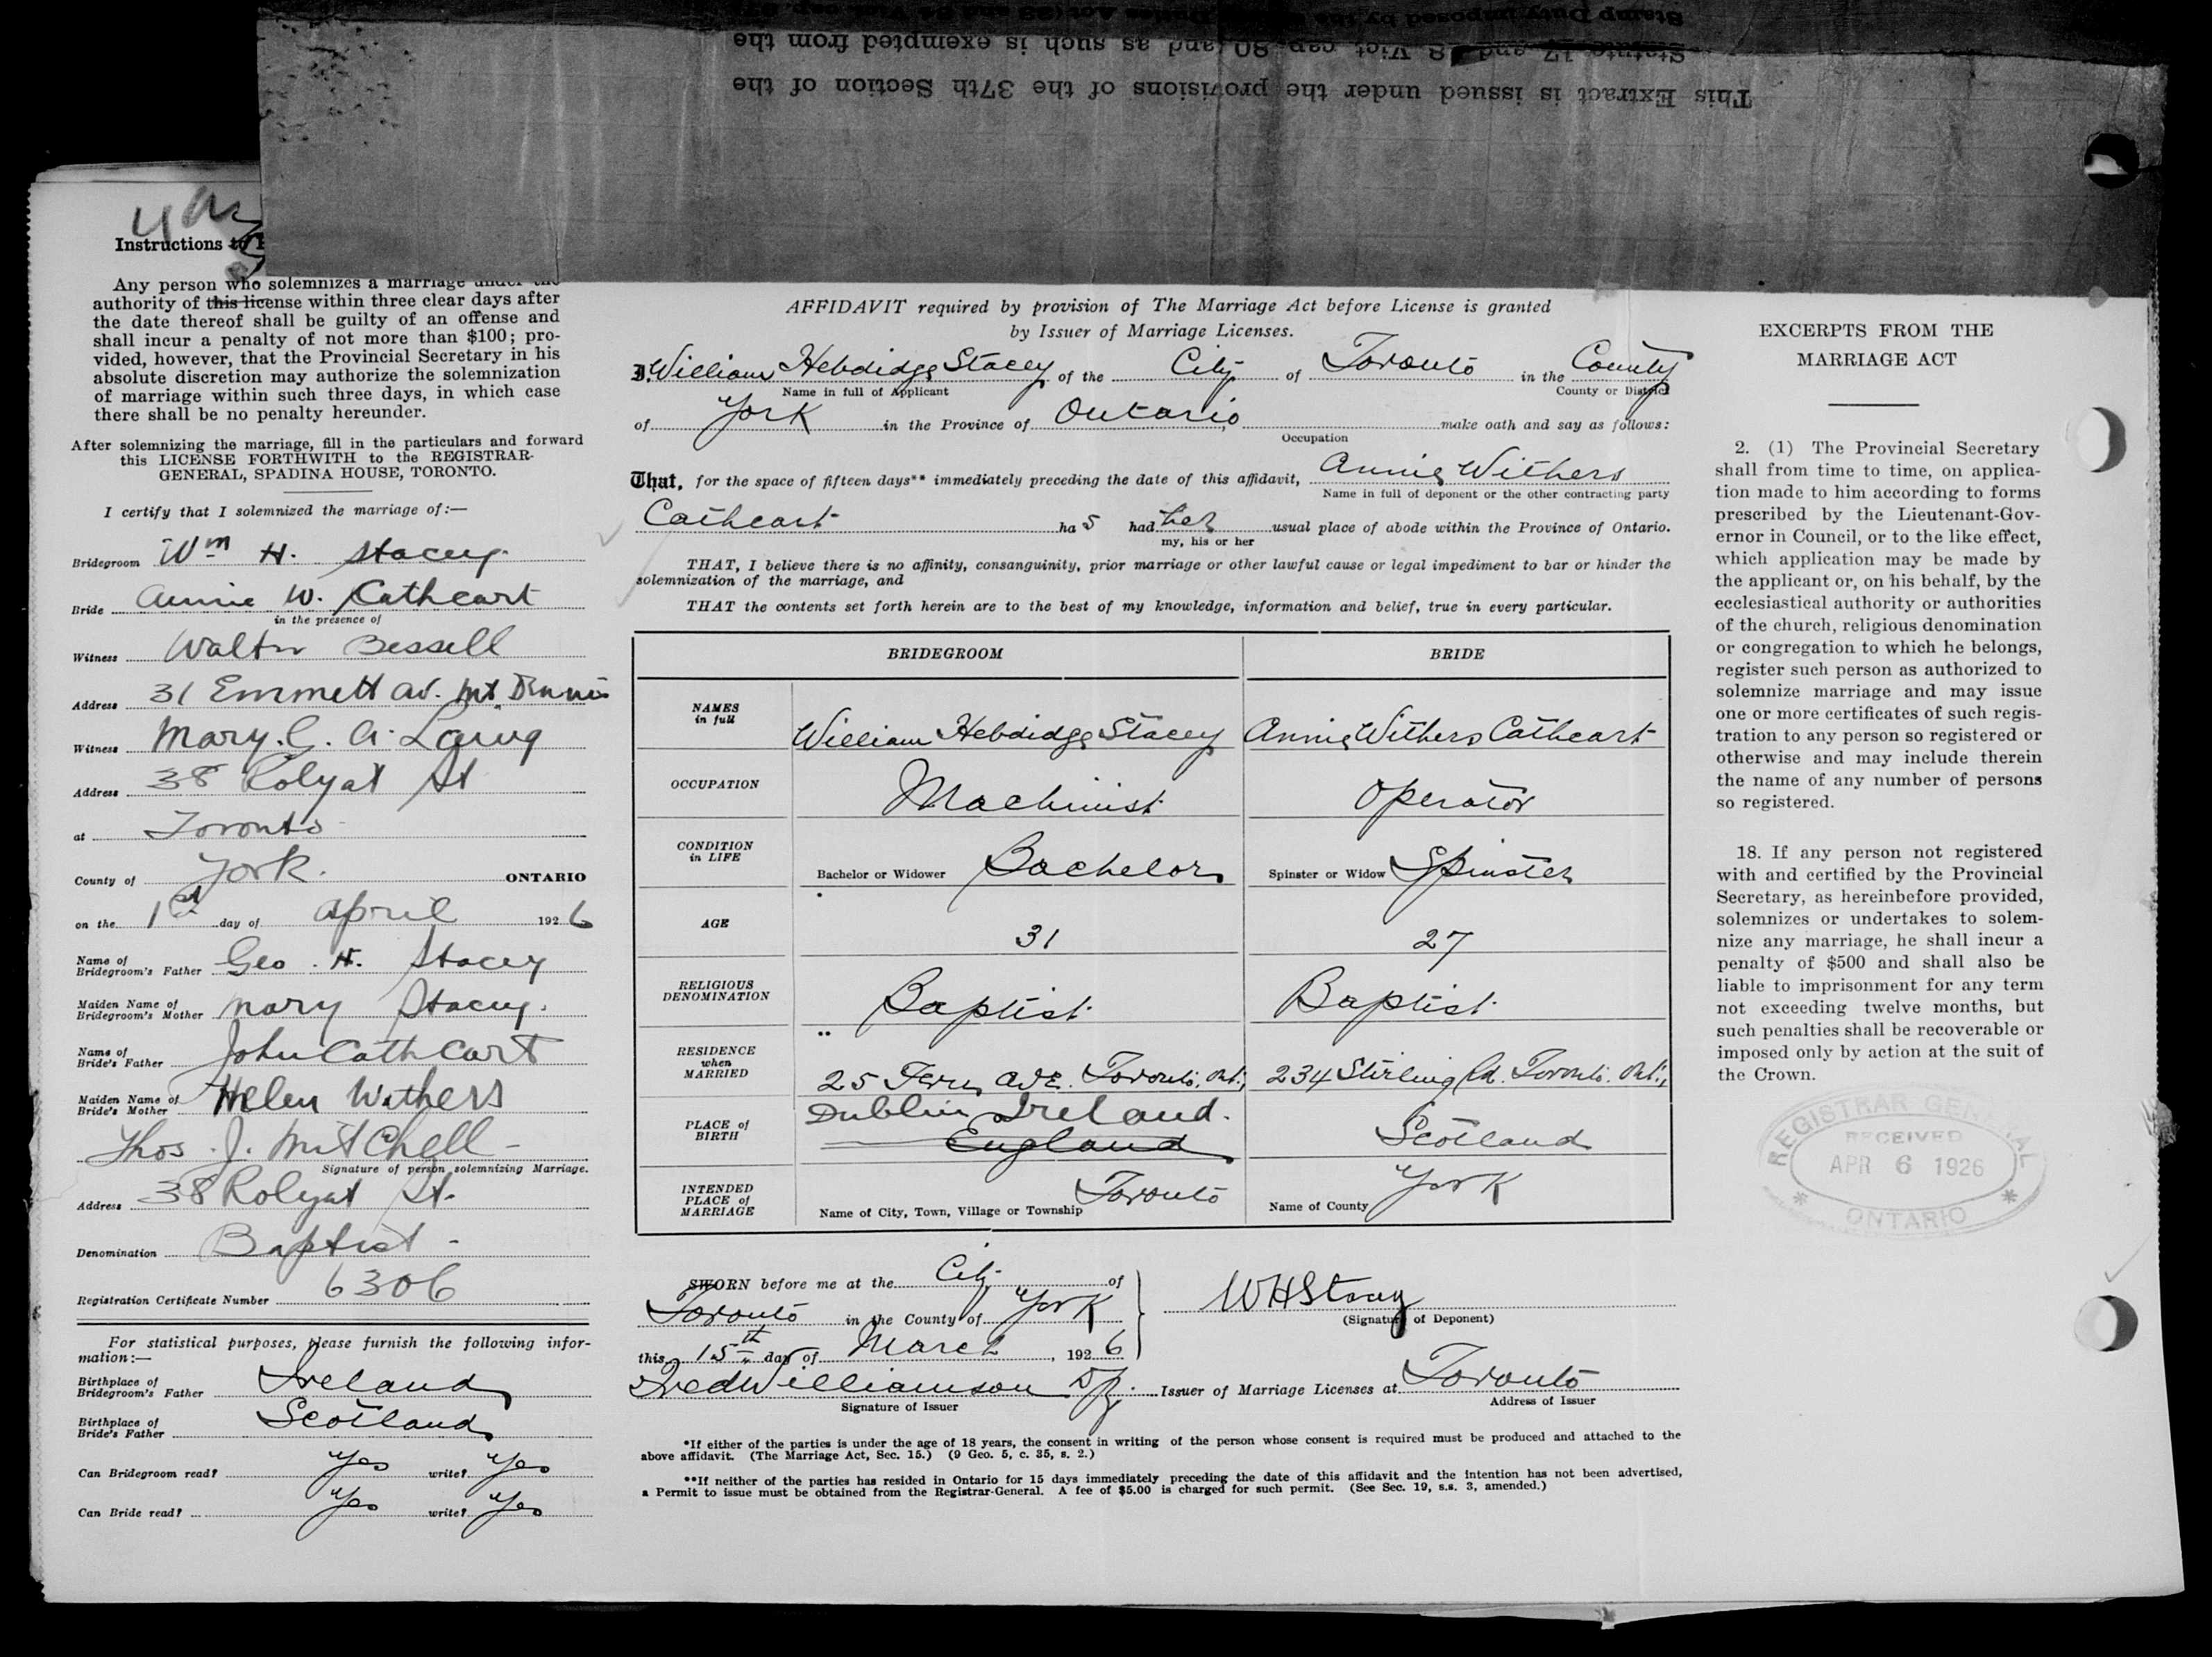 This Extract is issued under the provisions of the 37th Section of the
Statute 17 and 8 Vict. cap. 80, and as such is exempted from the
Stamp Duty imposed by the
Instructions to
Any person who solemnizes a marriage under the
authority of this license within three clear days after
the date thereof shall be guilty of an offense and
shall incur a penalty of not more than $100; pro-
vided, however, that the Provincial Secretary in his
absolute discretion may authorize the solemnization
of marriage within such three days, in which case
there shall be no penalty hereunder.
After solemnizing the marriage, fill in the particulars and forward
this LICENSE FORTHWITH to the REGISTRAR-
GENERAL, SPADINA HOUSE, TORONTO.
I certify that I solemnized the marriage of:—
Bridegroom Wm H. Stacey
Bride Annie W. Cathcart
in the presence of
Witness Walter Bessell
Address 31 Emmett Av. Mt. Dennis
Witness Mary. G. A. Laing
Address 38 Rolyat St
at Toronto
County of York. ONTARIO
on the 1st day of April 1926
Name of
Bridegroom's Father Geo. H. Stacey
Maiden Name of
Bridegroom's Mother Mary Stacey.
Name of
Bride's Father John Cathcart
Maiden Name of
Bride's Mother Helen Withers
Thos. J. Mitchell
Signature of person solemnizing Marriage.
Address 38 Rolyat St.
Denomination Baptist
Registration Certificate Number 6306
For statistical purposes, please furnish the following infor-
mation:—
Birthplace of
Bridegroom's Father Ireland
Birthplace of
Bride's Father Scotland
Can Bridegroom read? Yes write? Yes
Can Bride read? Yes write? Yes
AFFIDAVIT required by provision of The Marriage Act before License is granted
by Issuer of Marriage Licenses.
I, William Hebdidge Stacey of the City of Toronto in the County
Name in full of Applicant County or District
of York in the Province of Ontario, make oath and say as follows:
Occupation
That, for the space of fifteen days** immediately preceding the date of this affidavit, Annie Withers
Name in full of deponent or the other contracting party
Cathcart has had her usual place of abode within the Province of Ontario.
my, his or her
THAT, I believe there is no affinity, consanguinity, prior marriage or other lawful cause or legal impediment to bar or hinder the
solemnization of the marriage, and
THAT the contents set forth herein are to the best of my knowledge, information and belief, true in every particular.
BRIDEGROOM BRIDE
NAMES
in full William Hebdidge Stacey Annie Withers Cathcart
OCCUPATION Machinist Operator
CONDITION
in LIFE Bachelor or Widower Bachelor Spinster or Widow Spinster
AGE 31 27
RELIGIOUS
DENOMINATION Baptist Baptist
RESIDENCE
when
MARRIED 25 Fern Ave. Toronto, Ont., 234 Stirling Rd. Toronto. Ont.,
PLACE of
BIRTH Dublin Ireland. England Scotland
INTENDED
PLACE of
MARRIAGE Name of City, Town, Village or Township Toronto Name of County York
SWORN before me at the City of
Toronto in the County of York
this 15th day of March, 1926
WHStacey
(Signature of Deponent)
Fred Williamson Dp. Issuer of Marriage Licenses at Toronto
Signature of Issuer Address of Issuer
*If either of the parties is under the age of 18 years, the consent in writing of the person whose consent is required must be produced and attached to the
above affidavit. (The Marriage Act, Sec. 15.) (9 Geo. 5, c. 35, s. 2.)
**If neither of the parties has resided in Ontario for 15 days immediately preceding the date of this affidavit and the intention has not been advertised,
a Permit to issue must be obtained from the Registrar-General. A fee of $5.00 is charged for such permit. (See Sec. 19, s.s. 3, amended.)
EXCERPTS FROM THE
MARRIAGE ACT
2. (1) The Provincial Secretary
shall from time to time, on applica-
tion made to him according to forms
prescribed by the Lieutenant-Gov-
ernor in Council, or to the like effect,
which application may be made by
the applicant or, on his behalf, by the
ecclesiastical authority or authorities
of the church, religious denomination
or congregation to which he belongs,
register such person as authorized to
solemnize marriage and may issue
one or more certificates of such regis-
tration to any person so registered or
otherwise and may include therein
the name of any number of persons
so registered.
18. If any person not registered
with and certified by the Provincial
Secretary, as hereinbefore provided,
solemnizes or undertakes to solem-
nize any marriage, he shall incur a
penalty of $500 and shall also be
liable to imprisonment for any term
not exceeding twelve months, but
such penalties shall be recoverable or
imposed only by action at the suit of
the Crown.
REGISTRAR GENERAL
RECEIVED
APR 6 1926
ONTARIO